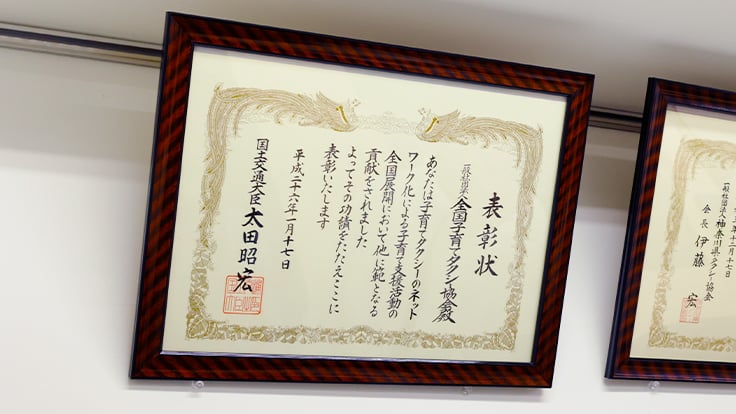 表彰状
一般社団法人 全国子育てタクシー協会殿
あなたは子育てタクシーのネット
ワーク化による子育て支援活動の
全国展開において他に範となる
貢献をされました
よってその功績をたたえここに
表彰いたします
平成二十六年一月十七日
国土交通大臣 太田昭宏
年十二月十七日
一般社団法人 神奈川県タクシー協会
会長 伊藤 宏